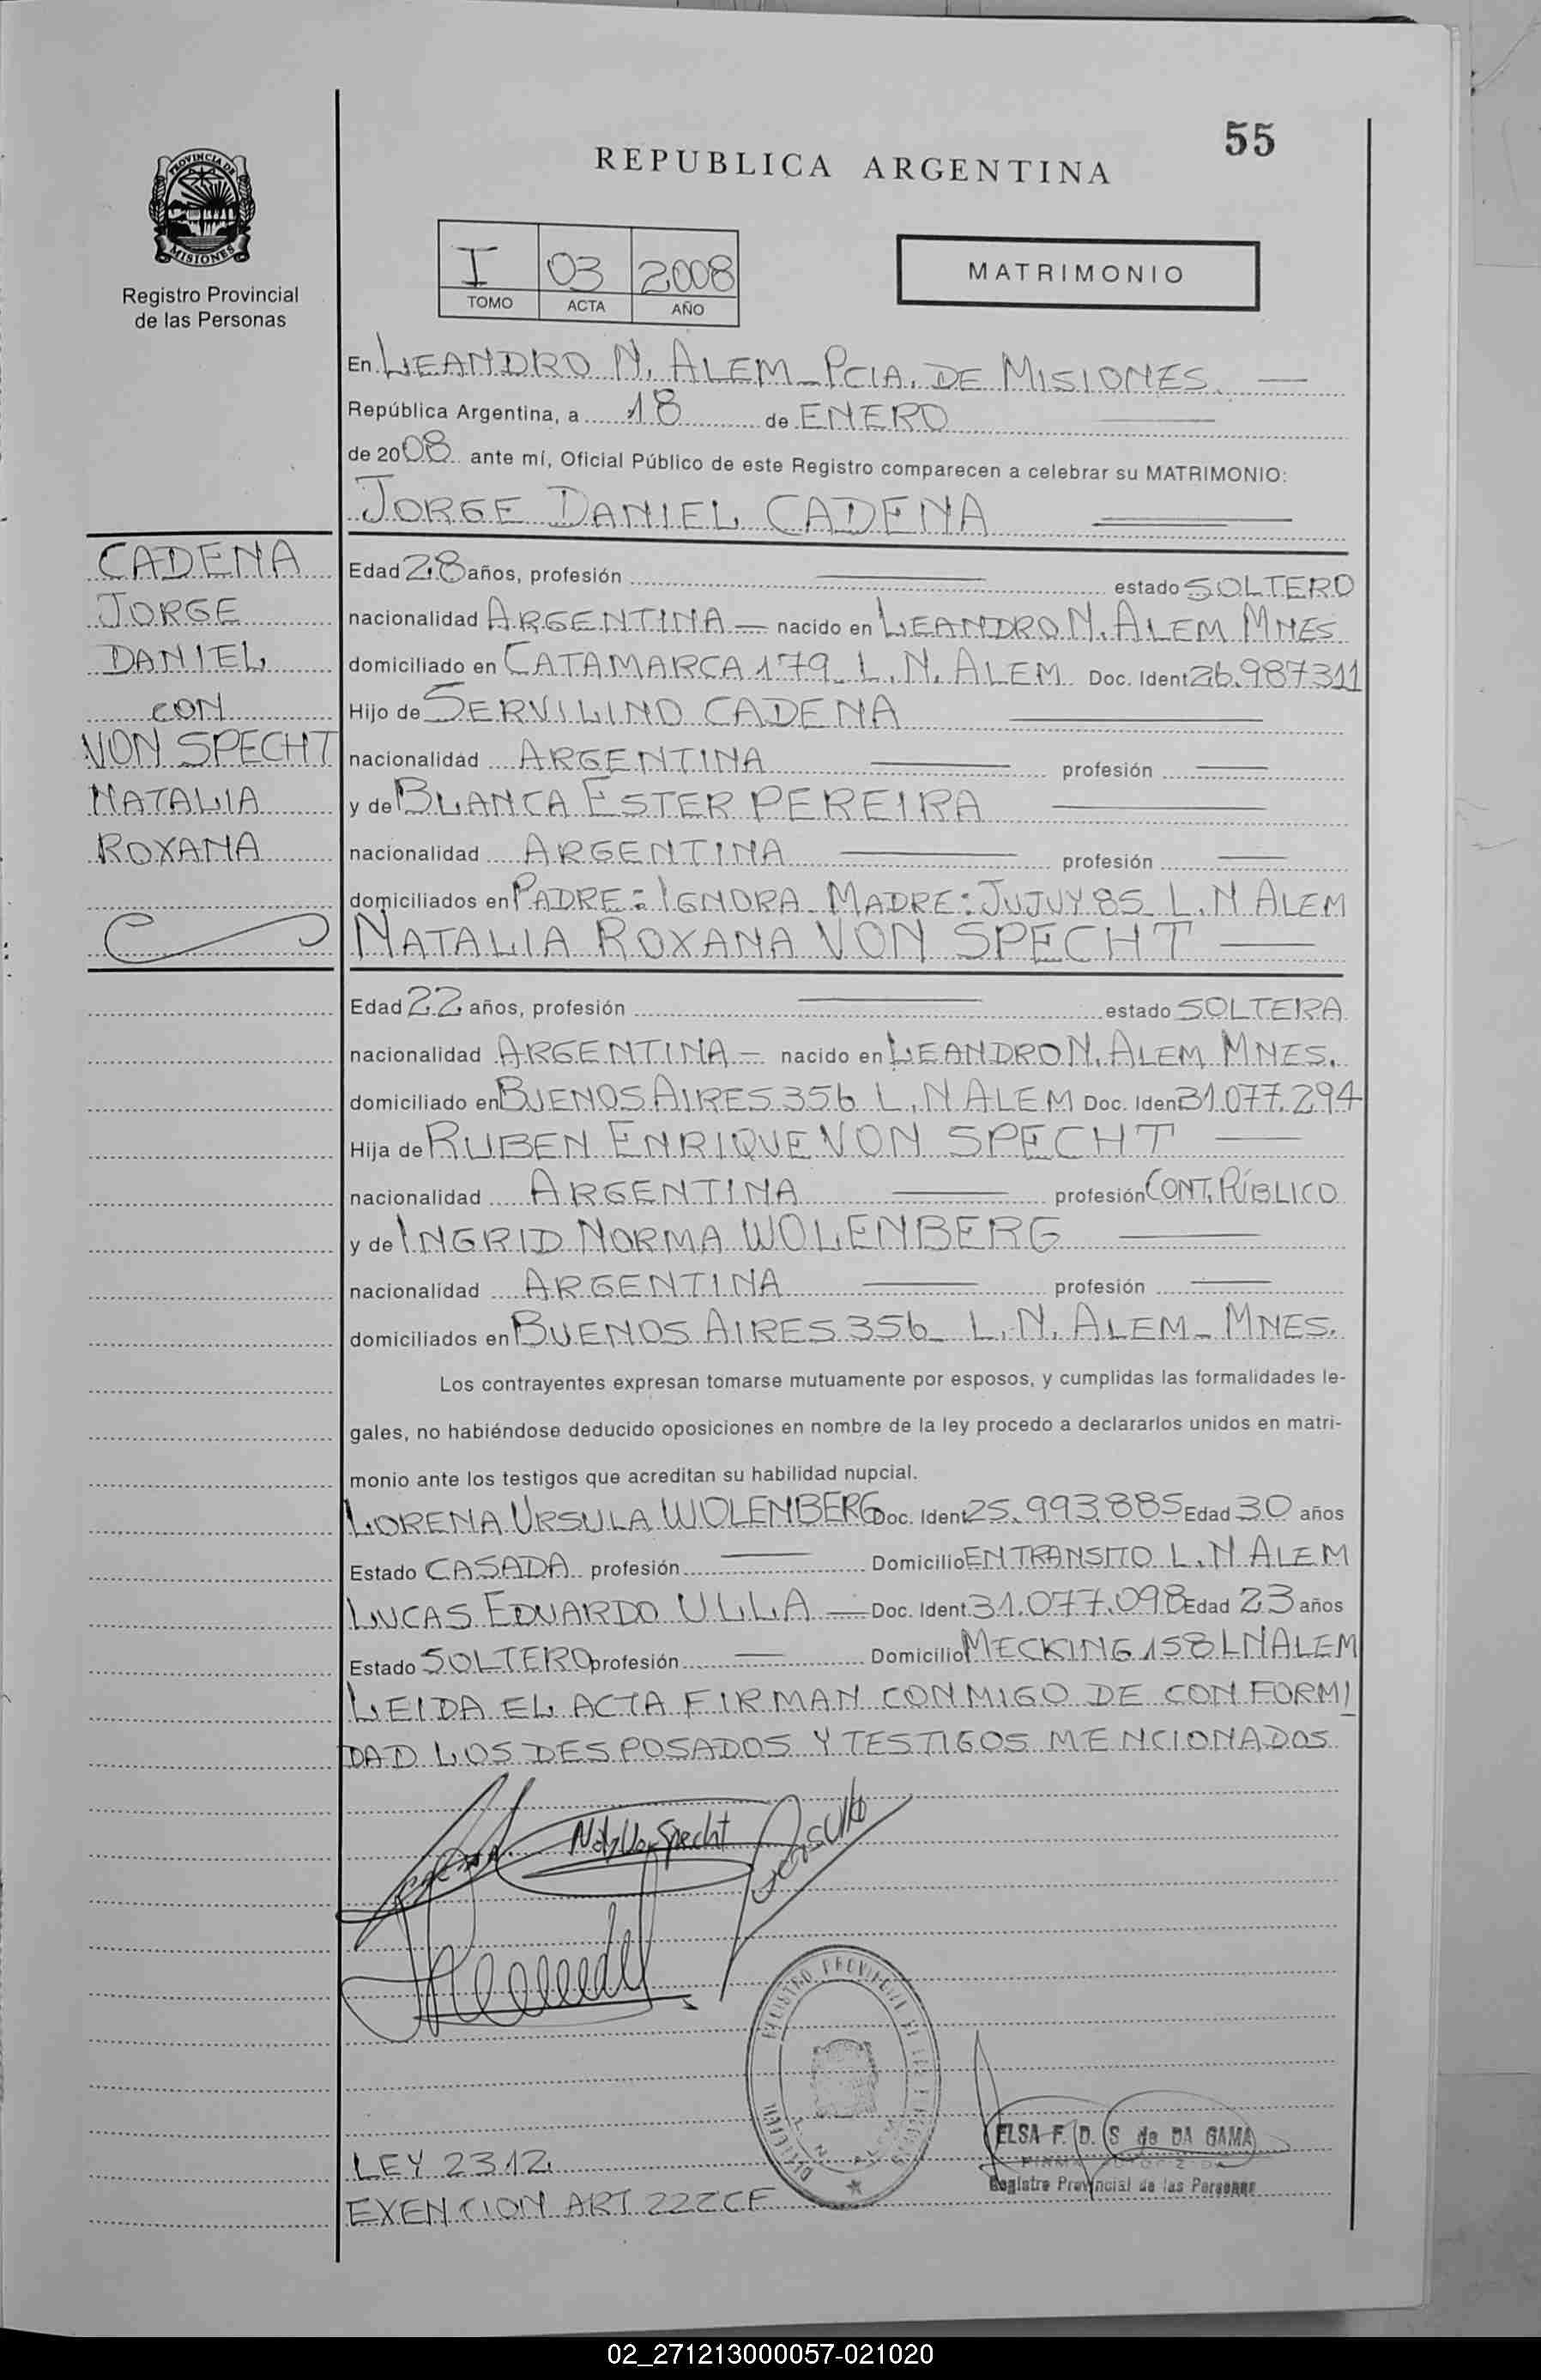 55
REPUBLICA ARGENTINA
PROVINCIA DE
MISIONES
Registro Provincial
de las Personas
I 03 2008
TOMO ACTA AÑO
MATRIMONIO
En LEANDRO N. ALEM - PCIA. DE MISIONES.
República Argentina, a 18 de ENERO
de 2008 ante mí, Oficial Público de este Registro comparecen a celebrar su MATRIMONIO:
JORGE DANIEL CADENA
CADENA
JORGE
DANIEL
CON
VON SPECHT
NATALIA
ROXANA
Edad 28 años, profesión estado SOLTERO
nacionalidad ARGENTINA — nacido en LEANDRO N. ALEM MNES
domiciliado en CATAMARCA 179 - L. N. ALEM Doc. Ident 26.987311
Hijo de SERVILINO CADENA
nacionalidad ARGENTINA profesión
y de BLANCA ESTER PEREIRA
nacionalidad ARGENTINA profesión
domiciliados en PADRE: IGNORA - MADRE: JUJUY 85 L. N ALEM
NATALIA ROXANA VON SPECHT
Edad 22 años, profesión estado SOLTERA
nacionalidad ARGENTINA — nacido en LEANDRO N. ALEM MNES.
domiciliado en BUENOS AIRES 356 L. N ALEM Doc. Iden 31.077.294
Hija de RUBEN ENRIQUE VON SPECHT
nacionalidad ARGENTINA profesión CONT. PÚBLICO
y de INGRID NORMA WOLENBERG
nacionalidad ARGENTINA profesión
domiciliados en BUENOS AIRES 356 - L. N. ALEM - MNES.
Los contrayentes expresan tomarse mutuamente por esposos, y cumplidas las formalidades le-
gales, no habiéndose deducido oposiciones en nombre de la ley procedo a declararlos unidos en matri-
monio ante los testigos que acreditan su habilidad nupcial.
LORENA URSULA WOLENBERG Doc. Ident 25.993.885 Edad 30 años
Estado CASADA profesión Domicilio EN TRANSITO L. N ALEM
LUCAS EDUARDO ULLA — Doc. Ident. 31.077.098 Edad 23 años
Estado SOLTERO profesión Domicilio MECKING 158 L N ALEM
LEIDA EL ACTA FIRMAN CONMIGO DE CONFORMI
DAD LOS DESPOSADOS Y TESTIGOS MENCIONADOS
ELSA F. D. S de DA GAMA
Registro Provincial de las Personas
LEY 2312
EXENCION ART 222CF
02_271213000057-021020